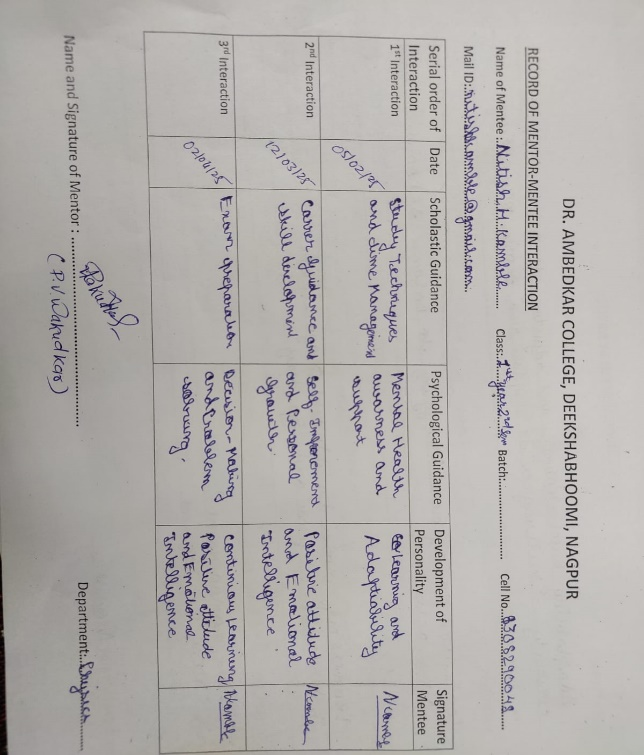 DR. AMBEDKAR COLLEGE, DEEKSHABHOOMI, NAGPUR
RECORD OF MENTOR-MENTEE INTERACTION
Name of Mentee: Nitish H. Kamble Class: 1st year 2nd Sem Batch: Cell No. 8308290048
Mail ID:
Serial order of Interaction Date Scholastic Guidance Psychological Guidance Development of Personality Signature Mentee
1st Interaction 05/02/25 Study Techniques and time Management Mental Health awarness and support Learning and Adaptability NKamble
2nd Interaction 12/03/25 Career guidance and skill development Self-Improvement and Personal Positive attitude and Emotional Intelligence NKamble
3rd Interaction 02/04/25 Exam preparation Decision-Making and Problem solving. Continious learning Positive attitude and Emotional Intelligence NKamble
Name and Signature of Mentor :
Department: